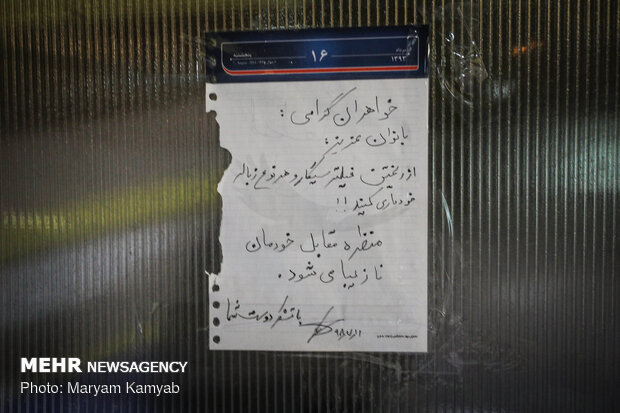 پنجشنبه
۱۶
مرداد
۱۳۹۳
خواهران گرامی :
بانوان عزیز :
از ریختن فیلتر سیگار و هر نوع زباله
خودداری کنید !!
منظره مقابل خودمان
نازیبا می شود .
با تشکر دوست شما
MEHR NEWSAGENCY
Photo: Maryam Kamyab